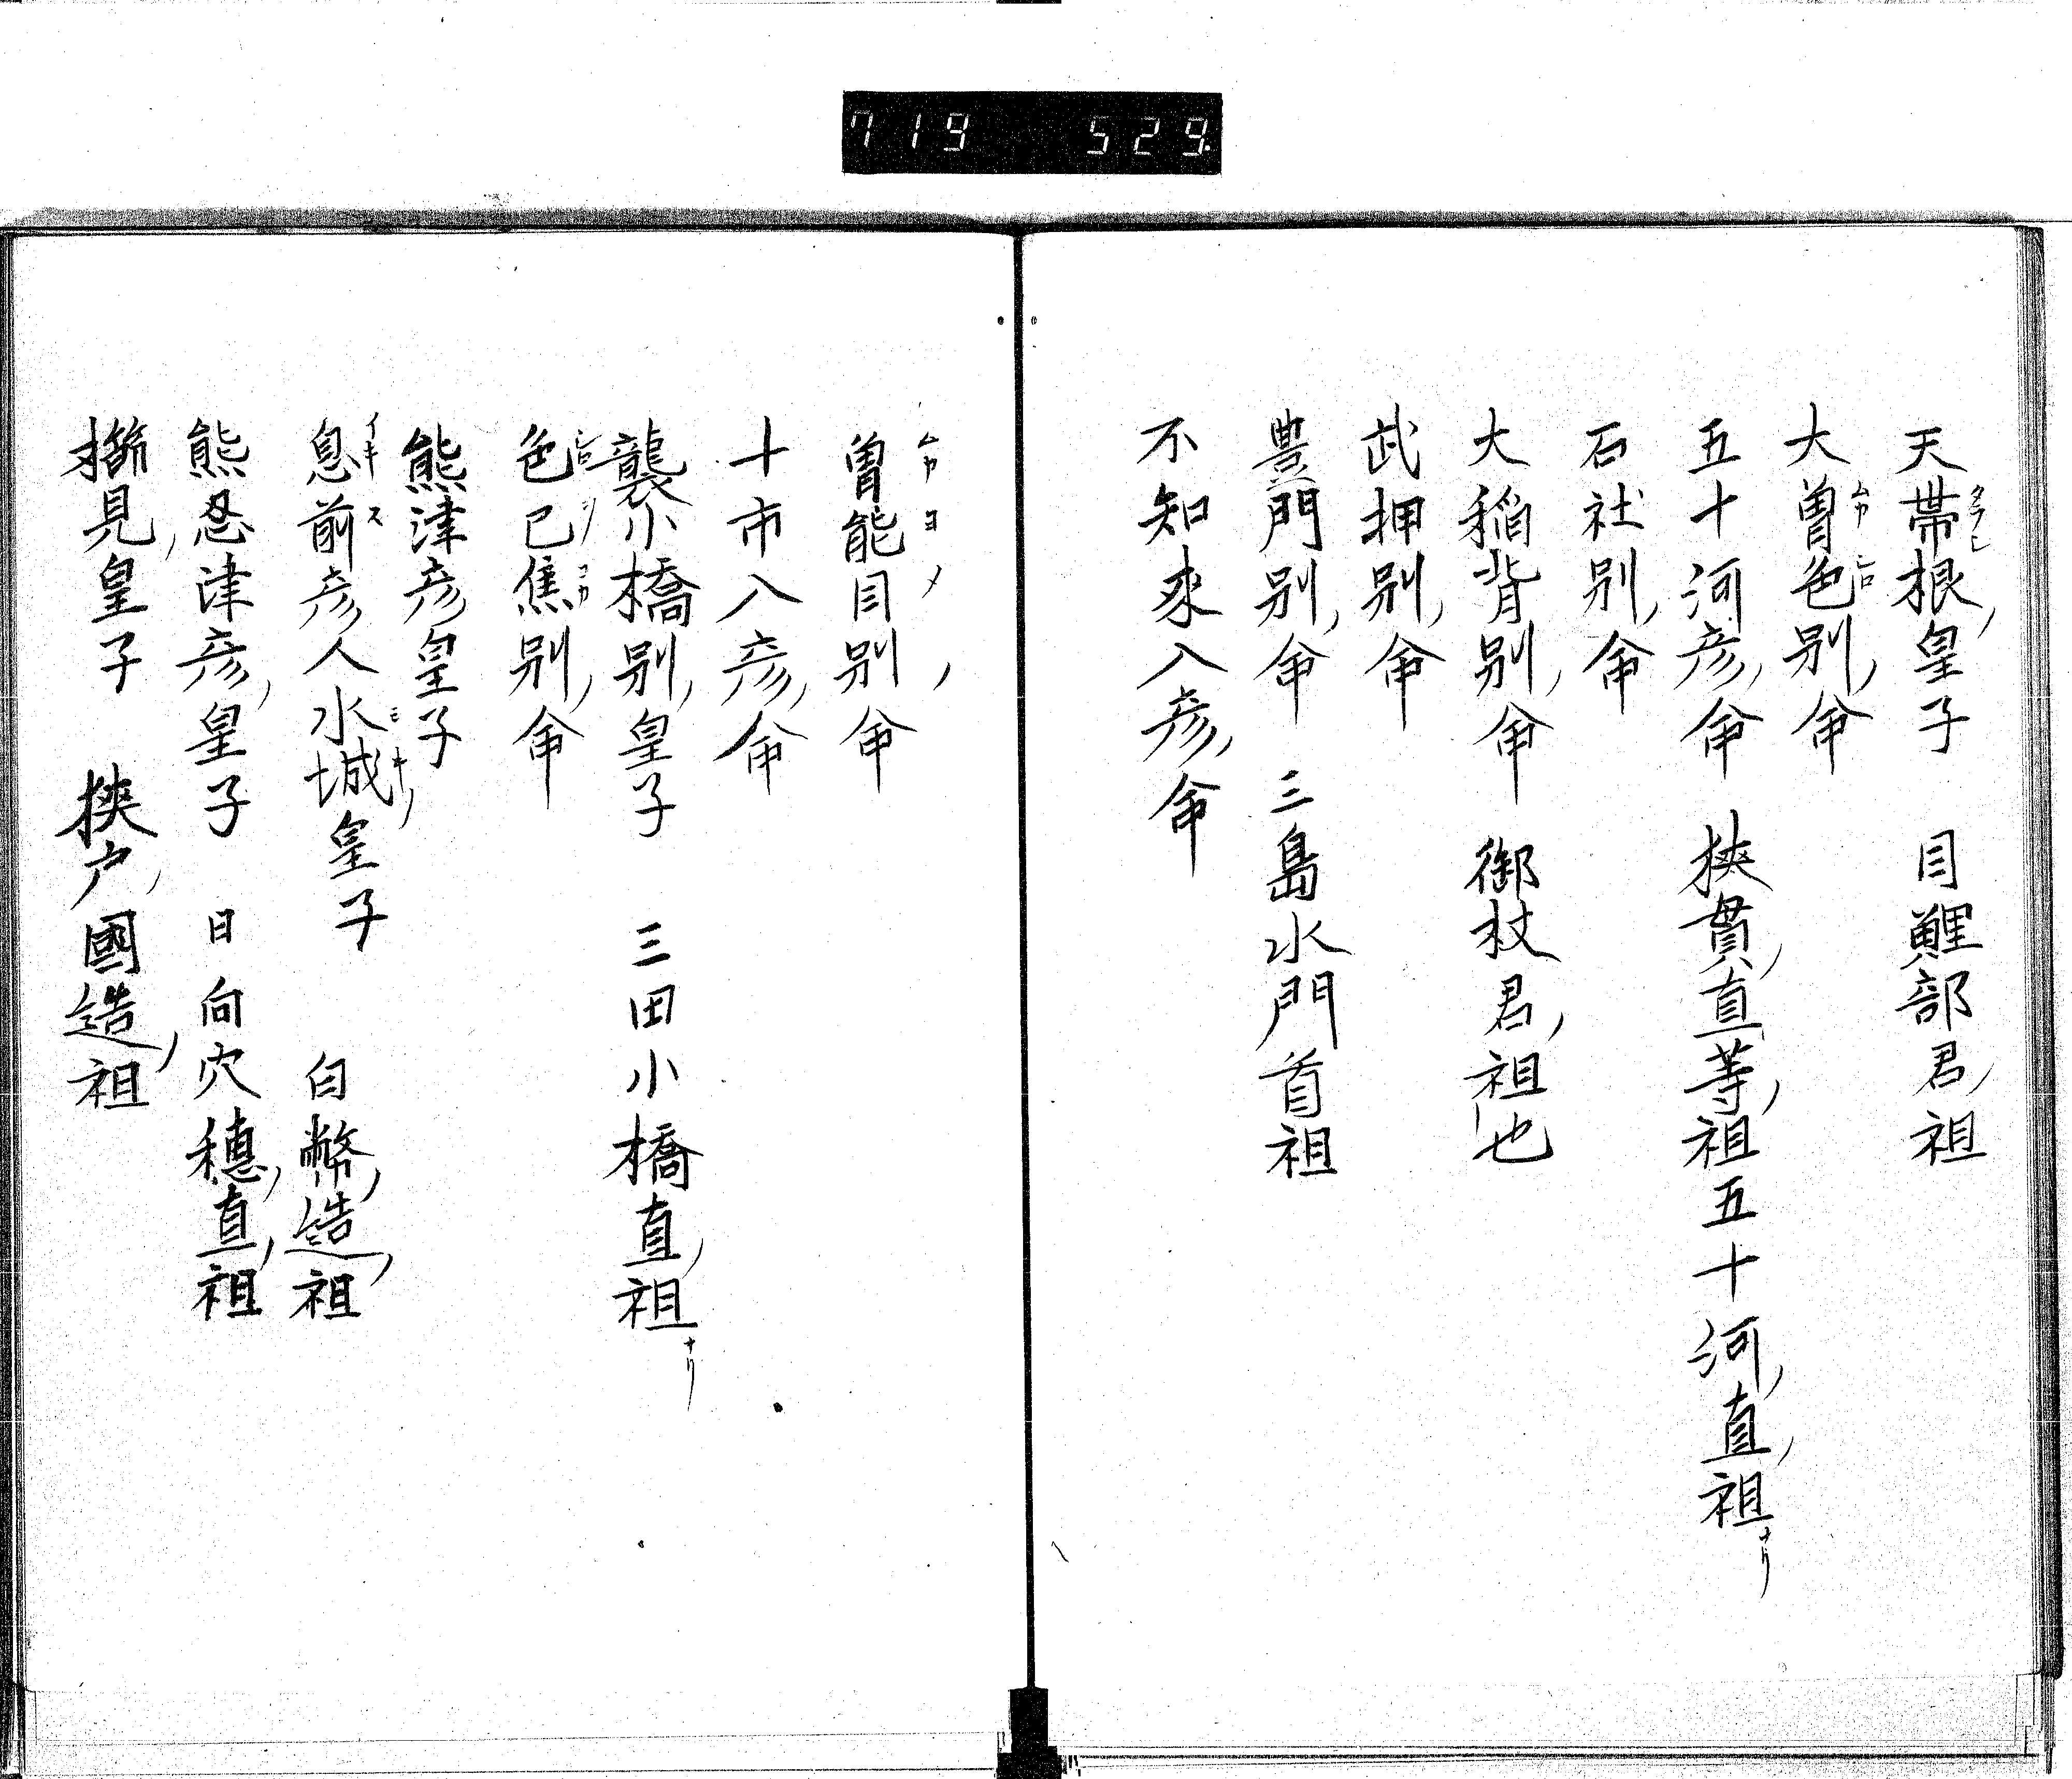 719 529.
天帯根皇子 目鯉部君祖
大曽色別命
五十河彦命 狹貫直等祖五十河直祖ナリ
石社別命
大稲背別命 御杖君祖也
武押別命
豊門別命 三島水門首祖
不知来入彦命
曽能目別命
十市入彦命
襲小橋別皇子 三田小橋直祖ナリ
色己焦別命
熊津彦皇子
息前彦人水城皇子 白幣造祖
熊忍津彦皇子 日向穴穂直祖
櫛見皇子 狹戸國造祖